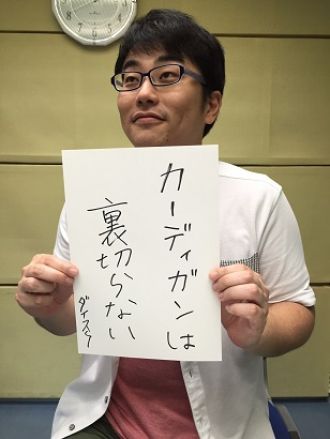 カーディガンは
裏切らない
ダイスケ